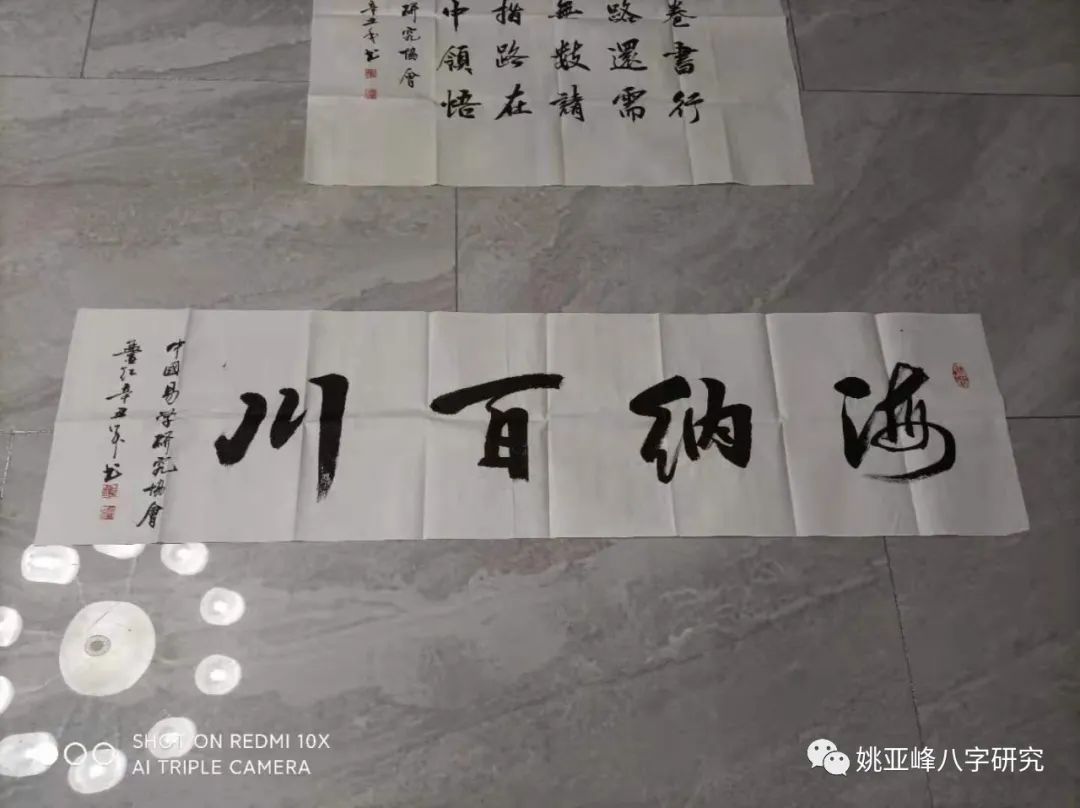 卷書行
路還需
無數請
指路在
中領悟
研究協會
辛丑年书
海納百川
中國易学研究協會
红辛丑年书
SHOT ON REDMI 10X
AI TRIPLE CAMERA
姚亚峰八字研究